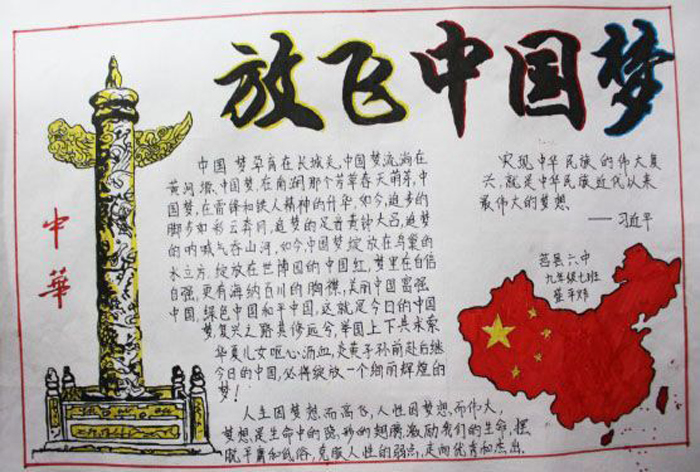 放飞中国梦
中华
中国梦孕育在长城关,中国梦流淌在
黄河墩,中国梦在南湖那个芳草春天萌芽,中
国梦,在雷锋和铁人精神的升华,如今,追梦的
脚步如彩云奔月,追梦的足音黄钟大吕,追梦
的呐喊气吞山河,如今中国梦绽放在鸟巢的
水立方,绽放在世博园的中国红,梦里在自信
自强,更有海纳百川的胸襟,美丽中国富强
中国,绿色中国和平中国,这就是今日的中国
梦,复兴之路其修远兮,举国上下共求索
华夏儿女呕心沥血,炎黄子孙前赴后继
今日的中国,必将绽放一个绚丽辉煌的
梦!
人生因梦想而高飞,人性因梦想而伟大,
梦想是生命中的隐形的翅膀,激励我们的生命,摆
脱平庸和低俗,克服人性的弱点,走向优秀和杰出.
实现中华民族的伟大复
兴,就是中华民族近代以来
最伟大的梦想
——习近平
莒县六中
九年级七班